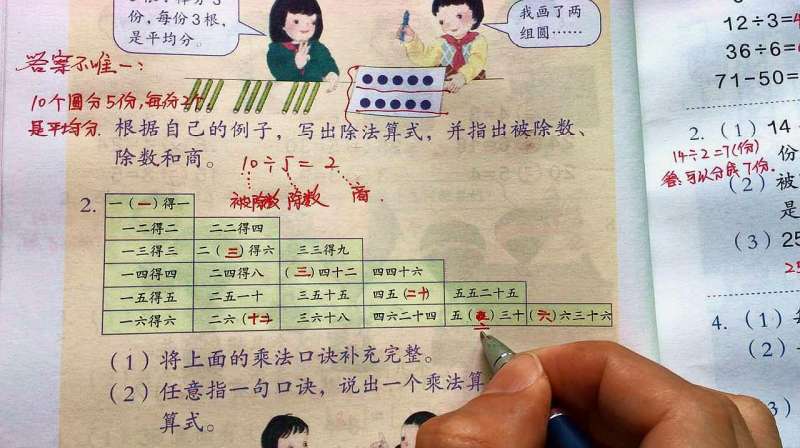 份，每份3根，
是平均分。
我画了两
组圆……
答案不唯一：
10个圆分5份，每份2个
是平均分.
根据自己的例子，写出除法算式，并指出被除数、
除数和商。
10÷5=2
被除数 除数 商.
2.
一（一）得一
一二得二 二二得四
一三得三 二（三）得六 三三得九
一四得四 二四得八 （三）四十二 四四十六
一五得五 二五一十 三五十五 四五（二十） 五五二十五
一六得六 二六（十二） 三六十八 四六二十四 五（）三十 （六）六三十六
（1）将上面的乘法口诀补充完整。
（2）任意指一句口诀，说出一个乘法算
算式。
12÷3=
36÷6=
71-50=
2.（1）14
14÷2=7(份)
份
答:可以分成7份.
（2）被
是
（3）25
25
4.（1）
（2）
3）